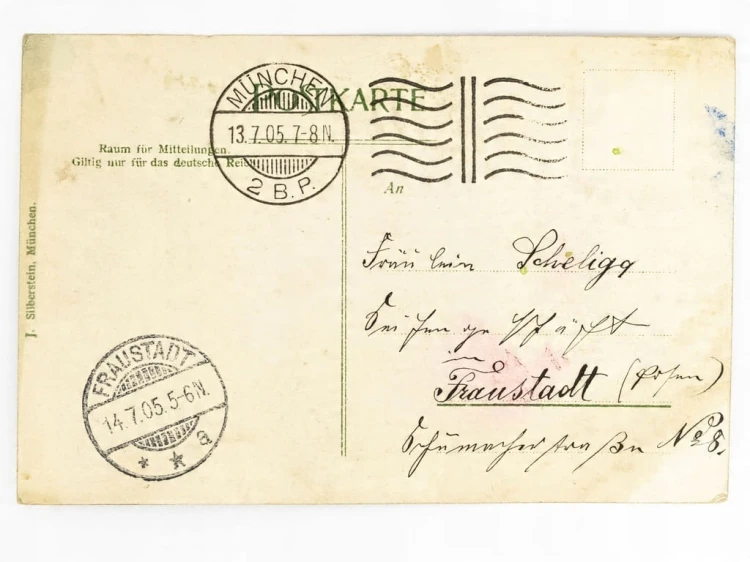 POSTKARTE
MÜNCHEN
13.7.05.7-8N.
2 B.P.
Raum für Mitteilungen.
Giltig nur für das deutsche Reich
An
J. Silberstein, München.
Fräulein Scheligg
Seifengeschäft
in
Fraustadt (Posen)
Schumacherstraße No 8.
FRAUSTADT
14.7.05.5-6N.
* * a